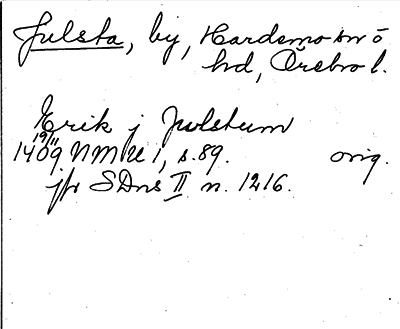 Julsta, by, Hardemo sn ö
hd, Örebro l.
Erik j Julstum
19/11
1409 NMU 1, s. 89. orig.
jfr SDns II n. 1216.